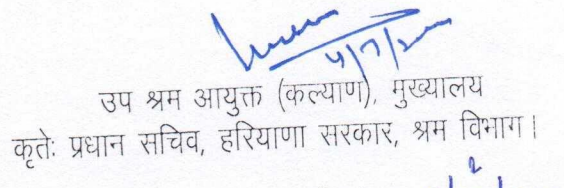 उप श्रम आयुक्त (कल्याण), मुख्यालय
कृतेः प्रधान सचिव, हरियाणा सरकार, श्रम विभाग।